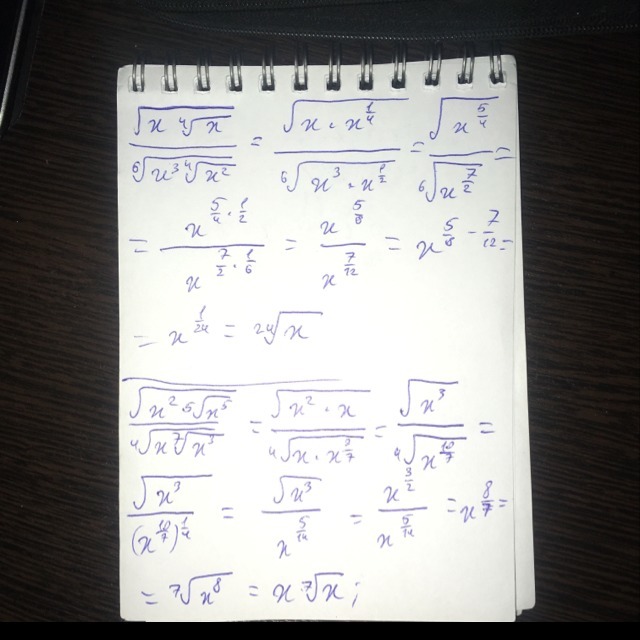 √(x ⁴√x) / ⁶√(x³ ⁴√x²) = √(x · x^(1/4)) / ⁶√(x³ · x^(1/2)) = √(x^(5/4)) / ⁶√(x^(7/2)) =
= x^(5/4 · 1/2) / x^(7/2 · 1/6) = x^(5/8) / x^(7/12) = x^(5/8 - 7/12) =
= x^(1/24) = ²⁴√x
√(x² · ⁵√x⁵) / ⁴√(x ⁷√x³) = √(x² · x) / ⁴√(x · x^(3/7)) = √(x³) / ⁴√(x^(10/7)) =
√(x³) / (x^(10/7))^(1/4) = √(x³) / x^(5/14) = x^(3/2) / x^(5/14) = x^(8/7) =
= ⁷√x⁸ = x ⁷√x ;